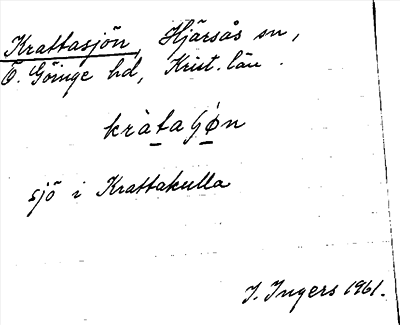 Krattasjön, Hjärsås sn,
Ö. Göinge hd, Krist. län.
kràtaʃǿn
sjö i Krattakulla
I. Ingers 1961.